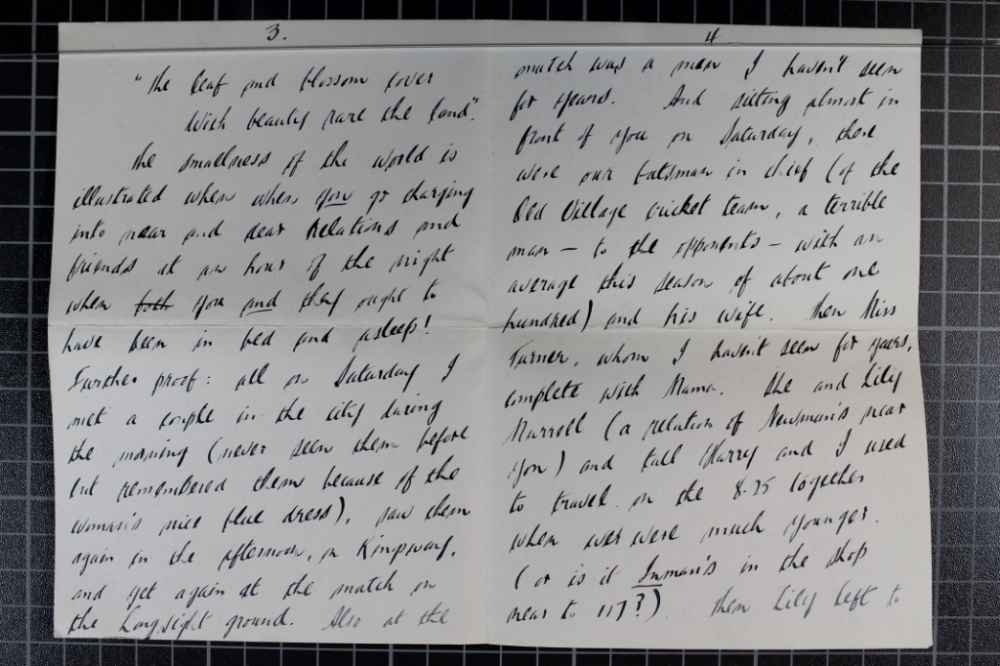 3.
"The leaf and blossom cover
With beauty rare the land".
The smallness of the world is
illustrated when when you go charging
into near and dear relations and
friends at an hour of the night
when both you and they ought to
have been in bed and asleep!
Further proof: all on Saturday I
met a couple in the city during
the morning (never seen them before
but remembered them because of the
woman's nice blue dress), saw them
again in the afternoon, on Kingsway,
and yet again at the match on
the Longsight ground. Also at the
4
match was a man I haven't seen
for years. And sitting almost in
front of you on Saturday, there
were our batsman in chief (of the
Old Village cricket team, a terrible
man – to the opponents – with an
average this season of about one
hundred) and his wife. Then Miss
Turner, whom I haven't seen for years,
complete with Mama. She and Lily
Murrell (a relation of Newman's near
you) and tall Harry and I used
to travel on the 8.25 together
when we were much younger.
(or is it Inman's in the shop
near to 117?) Then Lily left to